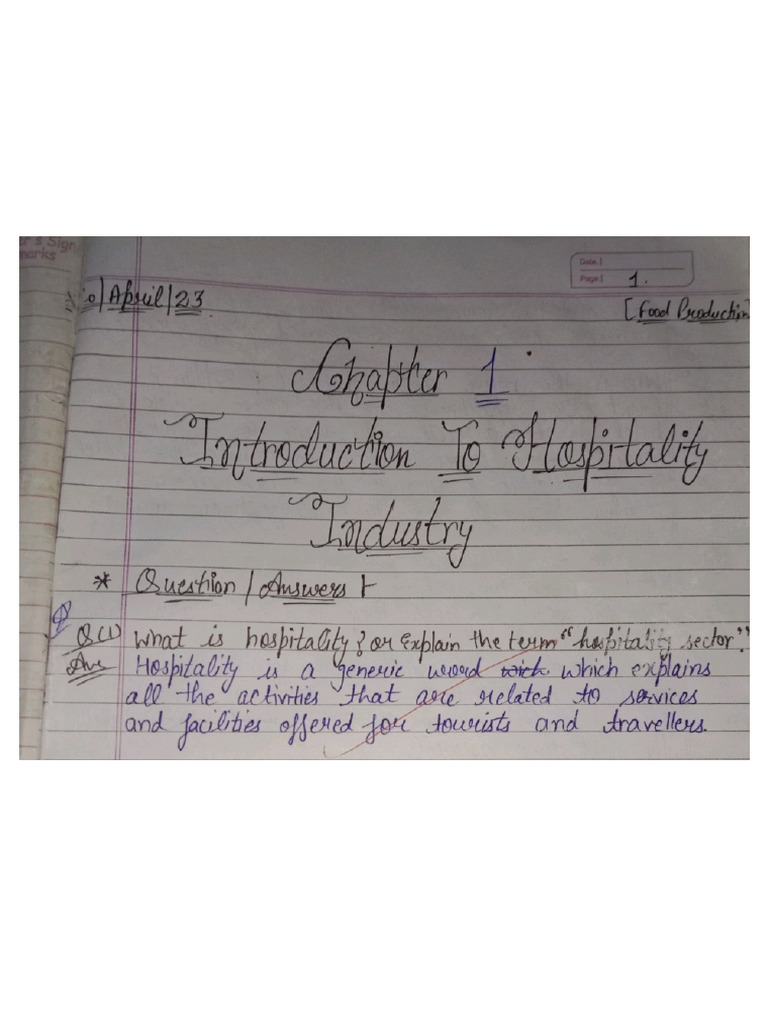 er's Sign
marks
Date. |
Page: | 1.
10/April/23
[Food Production
Chapter 1
Introduction To Hospitality
Industry
* Question / Answers :-
Q(1) What is hospitality? or Explain the term "hospitality sector."
Ans Hospitality is a generic word wich which explains
all the activities that are related to services
and facilities offered for tourists and travellers.